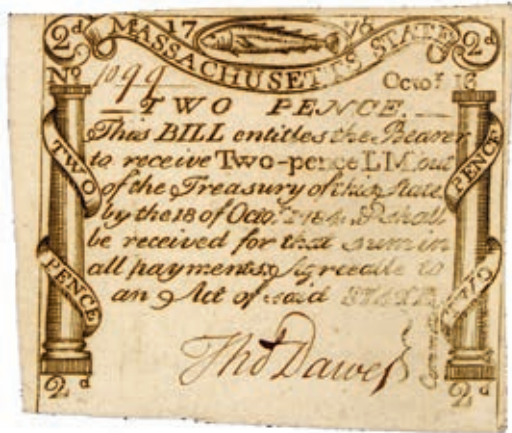 2d 17 76 2d
MASSACHUSETTS STATE
No 1099 Octor 18
TWO PENCE.
This BILL entitles the Bearer
to receive Two-pence L M. out
of the Treasury of this State
by the 18 of Octo. 1784. & shall
be received for that sum in
all payments, Agreeable to
an Act of said STATE
TWO PENCE
TWO PENCE
Thos Dawes
2d 2d